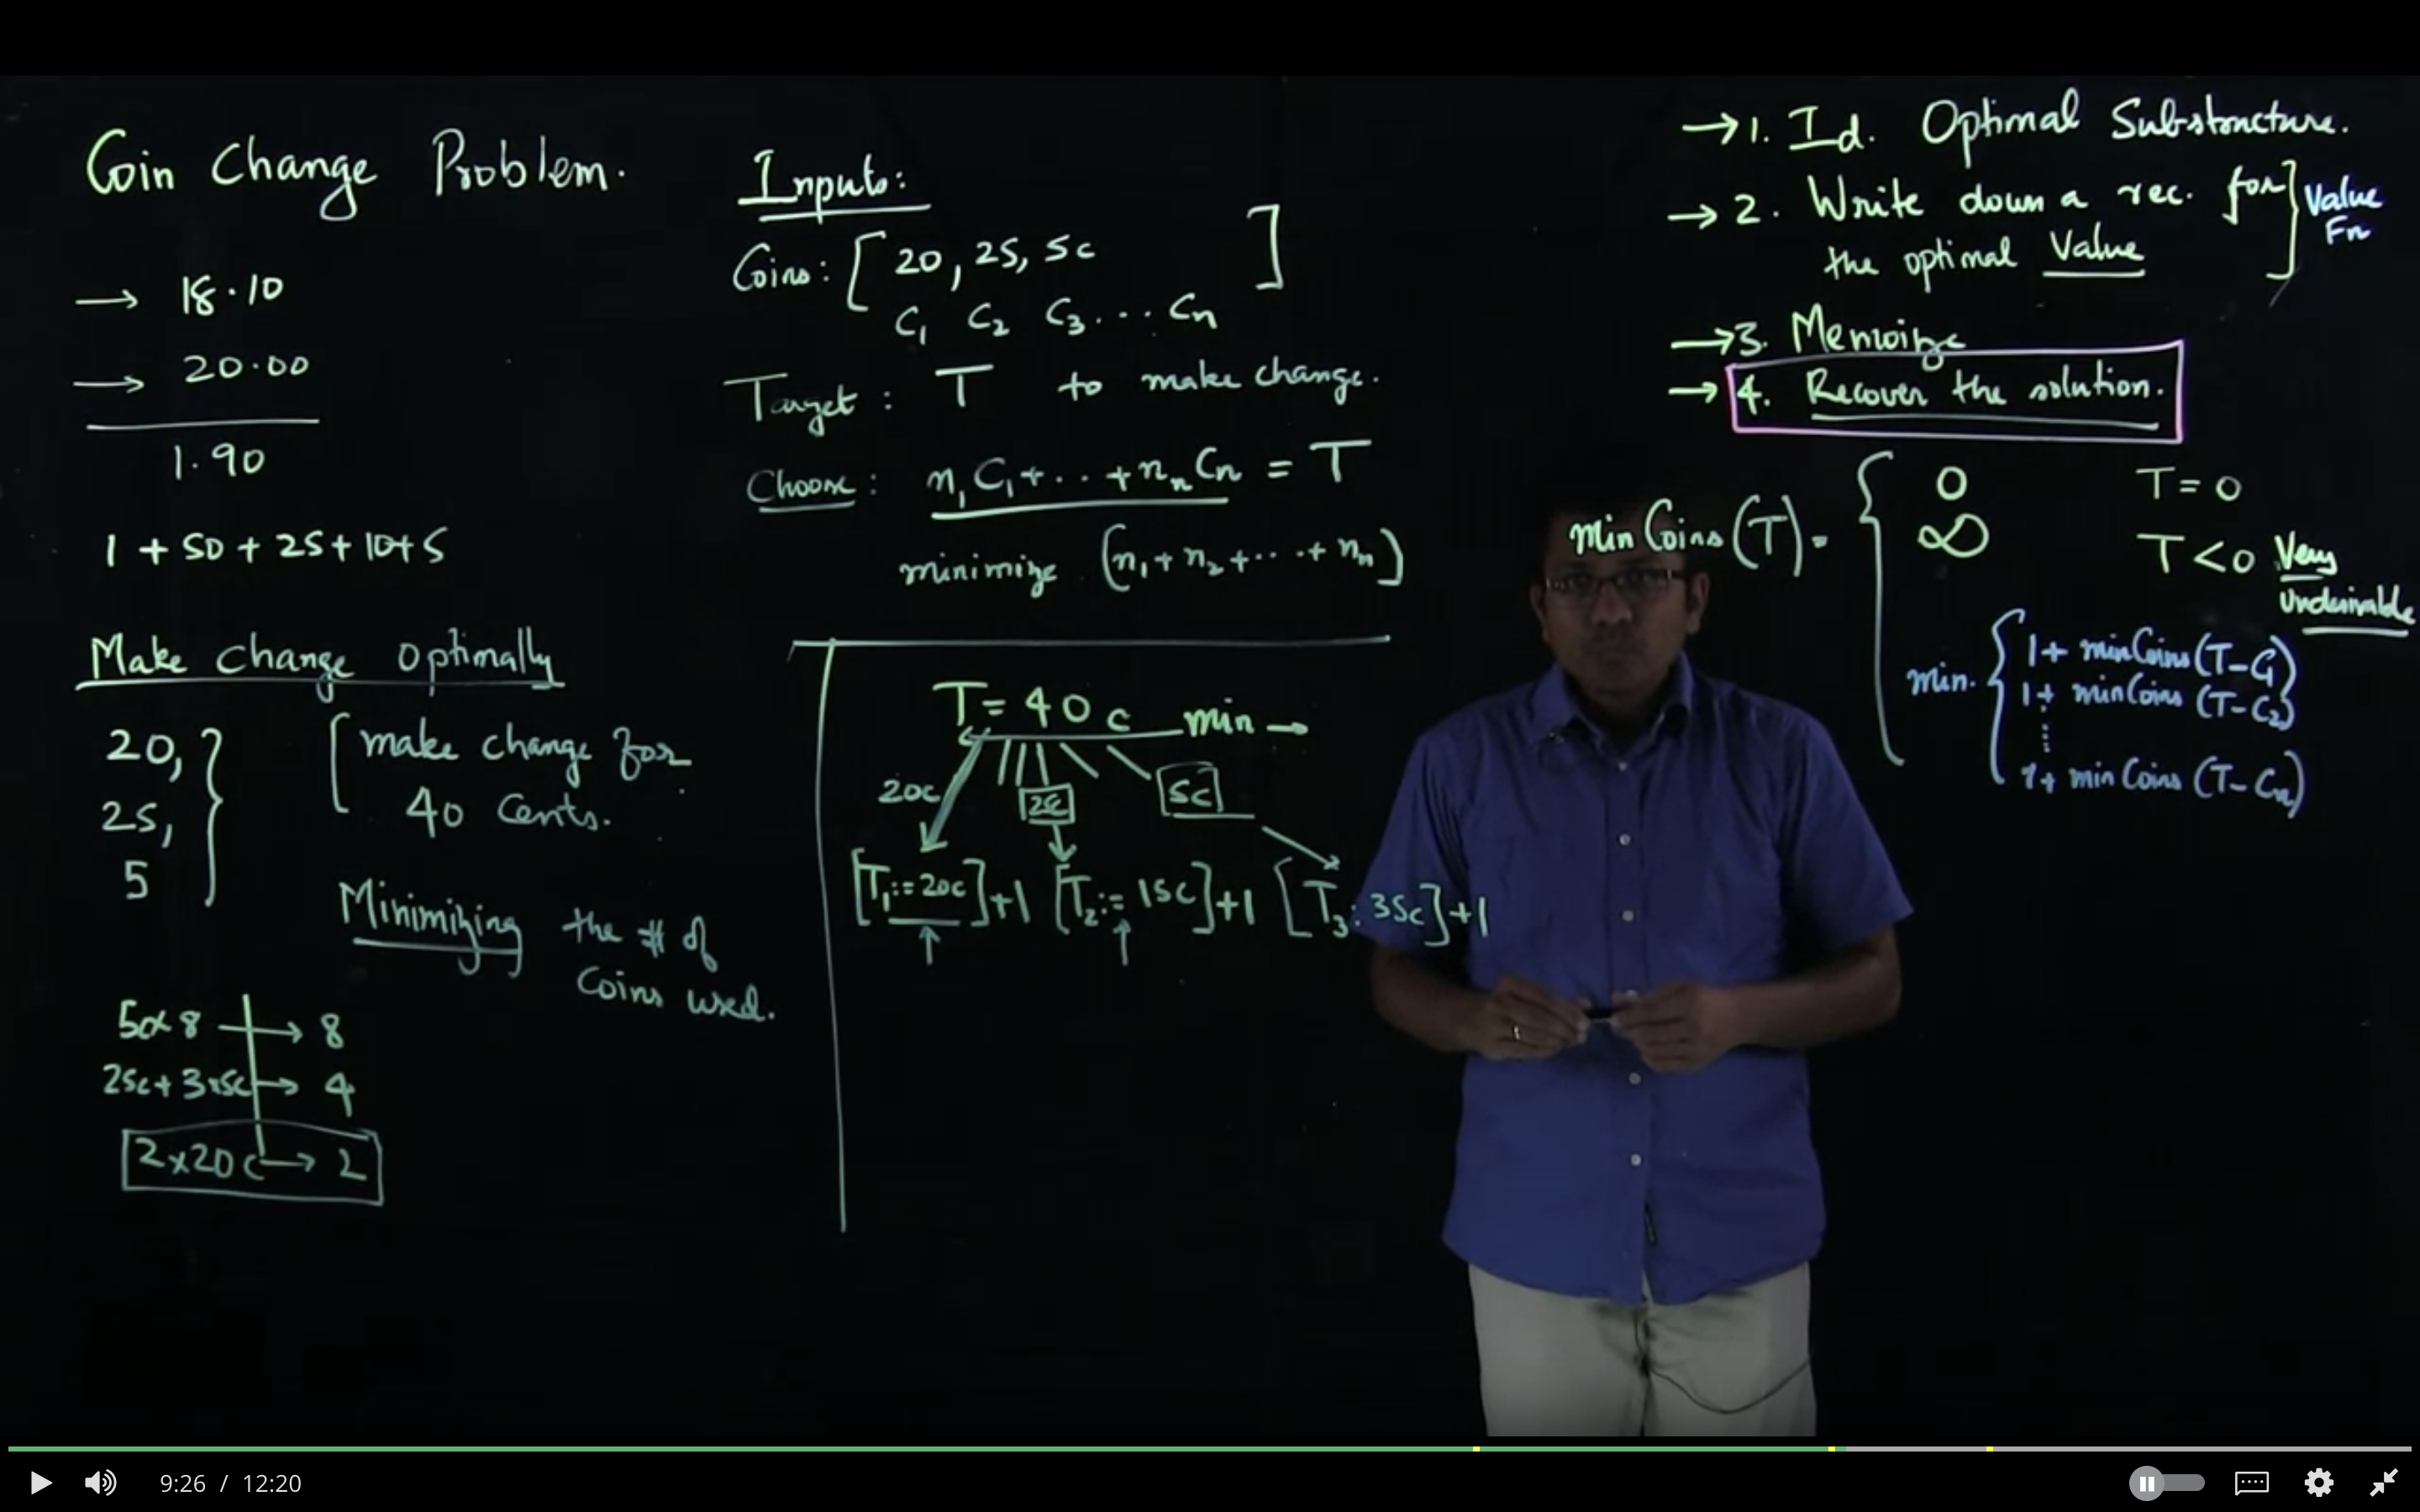 Coin Change Problem.
→ 18.10
→ 20.00
1.90
1 + 50 + 25 + 10 + 5
Make change optimally
20,
25,
5
make change for
40 Cents.
Minimizing the # of
Coins used.
5c x 8 → 8
25c + 3x5c → 4
2x20c → 2
Inputs:
Coins: [20, 25, 5c ]
C₁ C₂ C₃ ... Cₙ
Target: T to make change.
Choose: n₁C₁ + .. + nₙCₙ = T
minimize (n₁ + n₂ + ... + nₙ)
T = 40c min →
20c 25c 5c
[T₁ := 20c]+1 [T₂ := 15c]+1 [T₃: 35c]+1
→ 1. Id. Optimal Substructure.
→ 2. Write down a rec. for
the optimal Value
Value
Fn
→ 3. Memoize
→ 4. Recover the solution.
min Coins (T) =
0 T = 0
∞ T < 0 Very
Undesirable
min.
1 + minCoins (T-C₁)
1 + minCoins (T-C₂)
⋮
1 + minCoins (T-Cₙ)
9:26 / 12:20